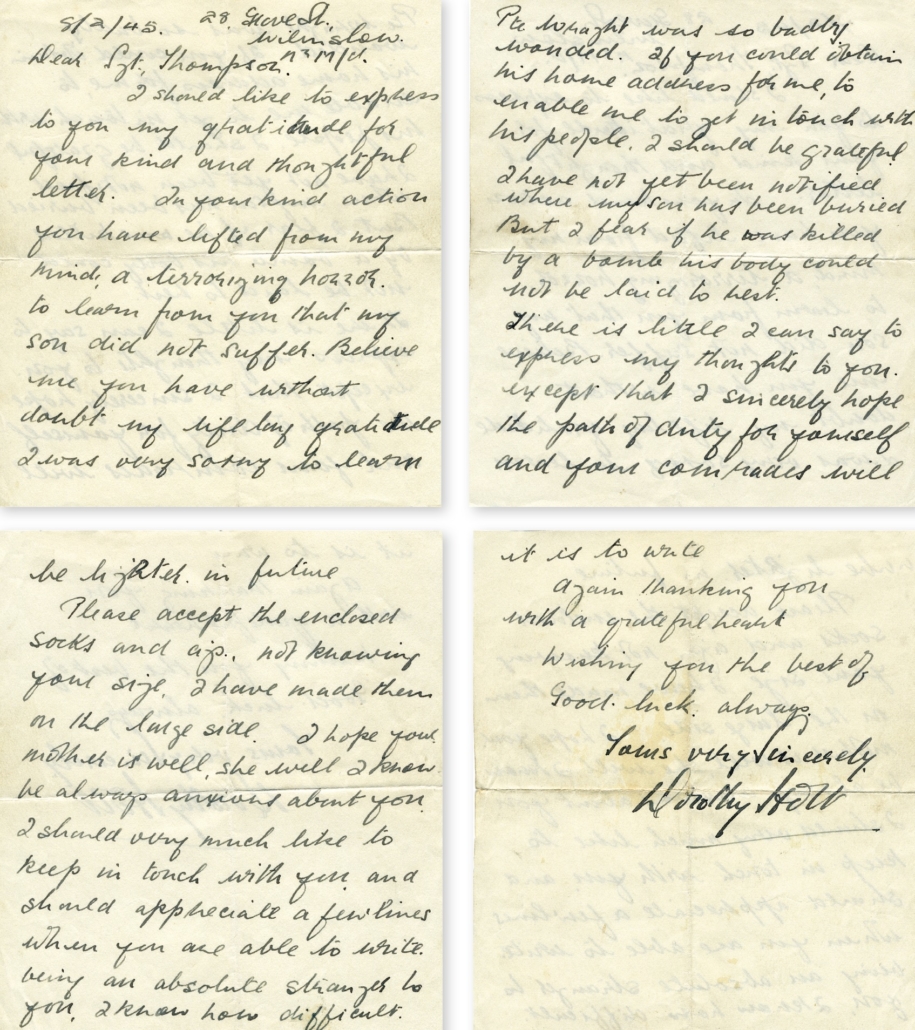 8/2/45. 28, Grove St.
Wilmslow.
Dear Sgt, Thompson. Nr M/c.
I should like to express
to you my gratitude for
your kind and thoughtful
letter. In your kind action
you have lifted from my
mind, a terrorizing horror.
to learn from you that my
son did not suffer. Believe
me you have without
doubt my life long gratitude
I was very sorry to learn
Pte Wraght was so badly
wonded. If you could obtain
his home address for me, to
enable me to get in touch with
his people. I should be grateful
I have not yet been notified
where my son has been buried
But I fear if he was killed
by a bomb his body could
not be laid to rest.
There is little I can say to
express my thoughts to you.
except that I sincerely hope
the path of duty for yourself
and your comrades will
be lighter. in future
Please accept the enclosed
socks and cigs., not knowing
your size, I have made them
on the large side. I hope your
mother is well, she will I know
be always anxious about you.
I should very much like to
keep in touch with you, and
should appreciate a few lines
when you are able to write.
being an absolute stranger to
you, I know how difficult.
it is to write
Again thanking you
with a grateful heart
Wishing you the best of
Good. luck. always.
Yours very sincerely.
Dorothy Holt